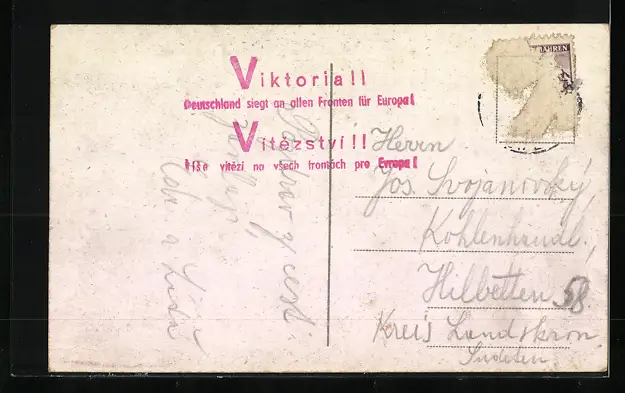 Viktoria!!
Deutschland siegt an allen Fronten für Europa!
Vítězství!!
Říše vítězí na všech frontách pro Evropu!
Pozdrav z cest
Herrn
Jos. Svojanovský,
Kohlenhändl.,
Hilbetten 58.
Kreis Landskron
Sudeten